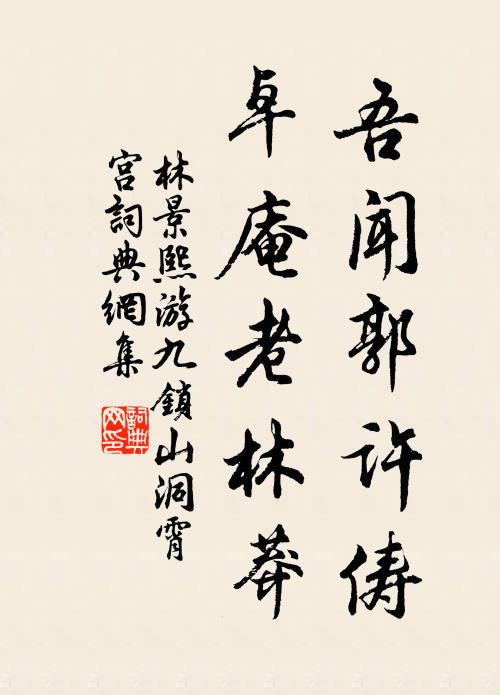 吾闻郭许俦
卓庵老林莽
林景熙游九鎖山洞霄
宫詞典網集
詞典网印